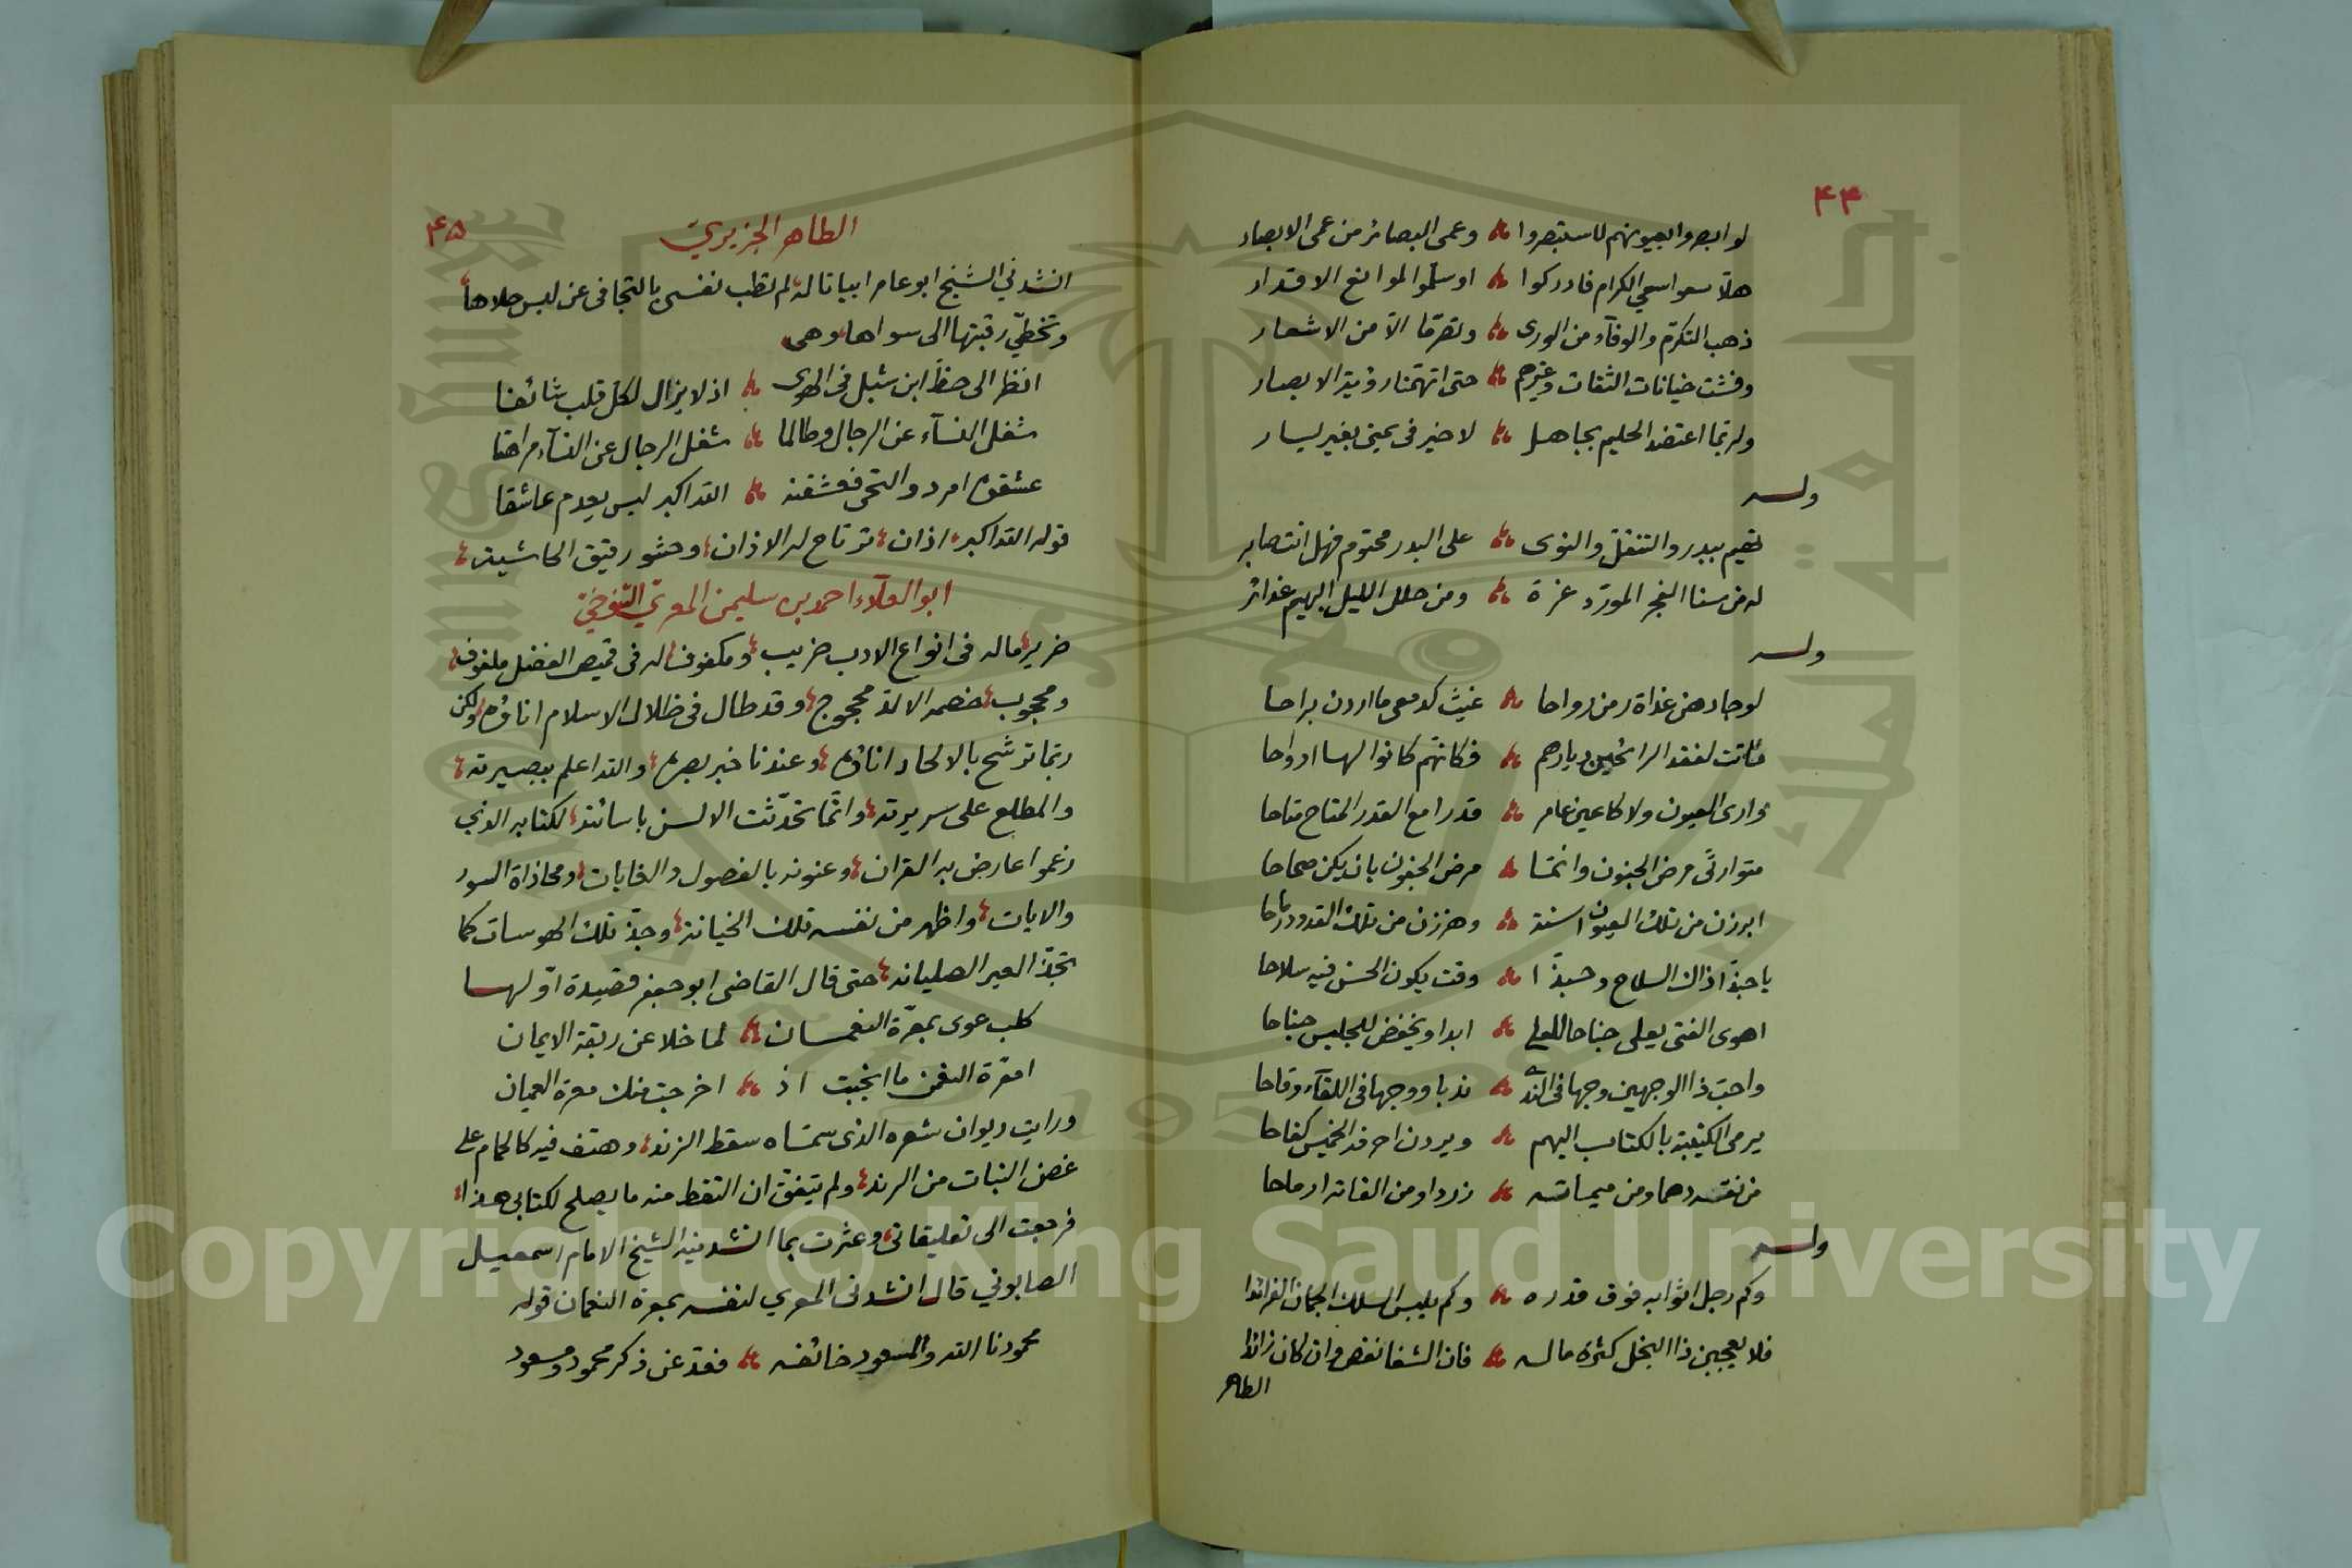 ٤٤
لو ابصروا بعيونهم لاستبصروا وعمى البصائر من عمى الابصار
هلا سعوا سعي الكرام فادركوا او سلموا لمواقع الاقدار
ذهب التكرم والوفآء من الورى وتصرما الا من الاشعار
وفشت خيانات الثقات وغيرهم حتى اتهمنا رؤية الابصار
ولربما اعتضد الحليم بجاهل لا خير في يمنى بغير يسار
وله
تهيم ببدر والتنقل والنوى على البدر محتوم فهل انت صابر
له من سنا الفجر المورد غرة ومن حلل الليل البهيم غدائر
وله
لو جادهن غداة رمن رواحا غيث كدمعي ما اردن براحا
ماتت لفقد الرائحين ديارهم فكانهم كانوا لها ارواحا
وارى العيون ولا كاعين عامر قدرا مع القدر المتاح متاحا
متوارثي مرض الجفون وانما مرض الجفون بان يكن صحاحا
ابرزن من تلك العيون اسنة وهززن من تلك القدود رماحا
يا حبذا ذاك السلاح وحبذا وقت يكون الحسن فيه سلاحا
اهوى الفتى يعلي جناحا للعلى ابدا ويخفض للجليس جناحا
واحب ذا الوجهين وجها في الندى ندبا ووجها في اللقآء وقاحا
يرمي الكتيبة بالكتاب اليهم ويردن احرفه الخميس كفاحا
من نقسه دهما ومن ميماته زردا ومن الفاته ارماحا
وله
وكم رجل اثوابه فوق قدره وكم يلبس السلك الجمان الفرائدا
فلا يعجبن ذا البخل كثرة ماله فان الشغا نقص وان كان زائدا
الطاهر
٤٥
الطاهر الجزيري
انشدني الشيخ ابو عامر ابياتا له لم تطب نفسي بالتجافي عن لبس حلاها
وتخطي رقبتها الى سواها وهي
انظر الى حظ ابن شبل في الهوى اذ لا يزال لكل قلب شائقا
شغل النسآء عن الرجال وطالما شغل الرجال عن النسآء مراهقا
عشقوه امرد والتحى فعشقنه الله اكبر ليس يعدم عاشقا
قوله الله اكبر اذان ترتاح له الاذان وحشو رقيق الحاشية
ابو العلآء احمد بن سليمن المعري التنوخي
ضرير ماله في انواع الادب ضريب ومكفوف له في قميص الفضل ملفوف
ومحجوب خصمه الالد محجوج وقد طال في ظلال الاسلام اناؤه ولكن
ربما ترشح بالالحاد اناؤه وعندنا خبر بصره والله اعلم ببصيرته
والمطلع على سريرته وانما تحدثت الالسن باساءته لكتابه الذي
زعموا عارض به القران وعنونه بالفصول والغايات ومحاذاة السور
والايات واظهر من نفسه تلك الخيانة وجذ تلك الهوسات كما
تجذ العير الصليانه حتى قال القاضي ابو جعفر قصيدة اولها
كلب عوى بمعرة النعمان لما خلا عن ربقة الايمان
امعرة النعمن ما انجبت اذ اخرجت منك معرة العميان
ورايت ديوان شعره الذي سماه سقط الزند وهتف فيه كالحمام على
غصن النبات من الرند ولم يتفق ان التقط منه ما يصلح لكتابي هذا
فرجعت الى تعليقاتي وعثرت بما انشدنيه الشيخ الامام اسمعيل
الصابوني قال انشدني المعري لنفسه بمعرة النعمان قوله
محمودنا الله والمسعود خائفه فعد عن ذكر محمود ومسعود
جامعة الملك سعود
King Saud University
1957
Copyright © King Saud University